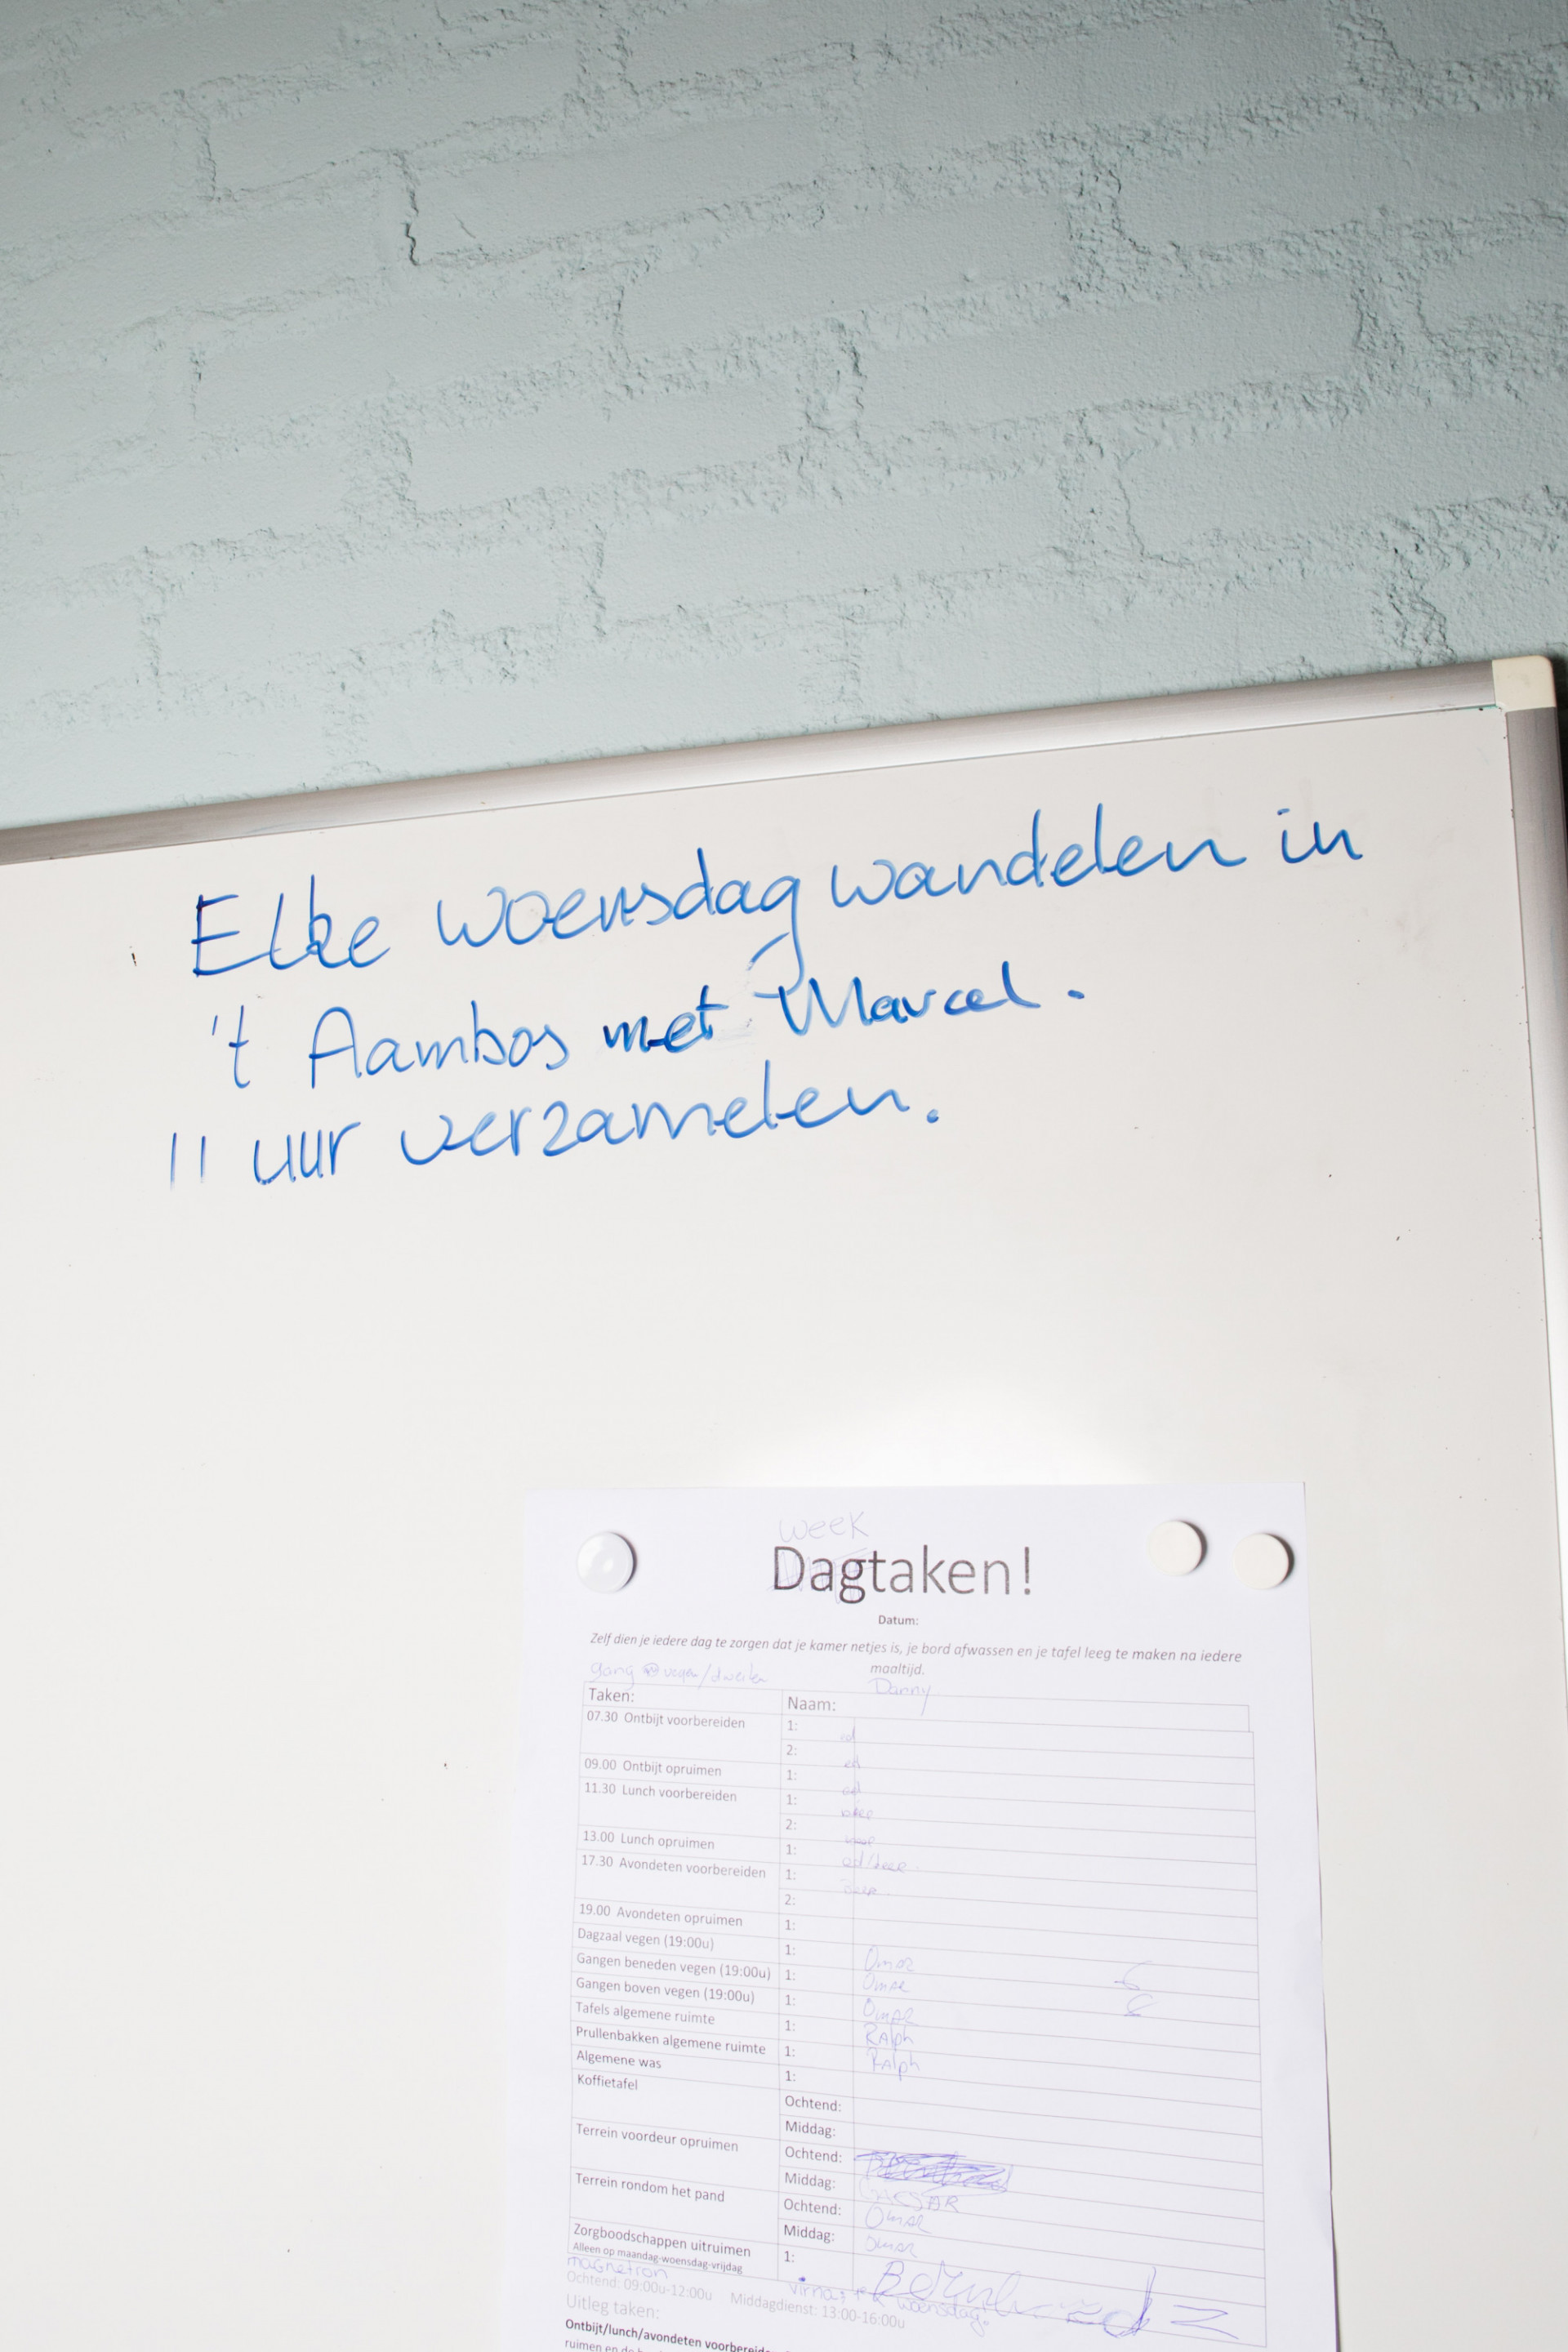 Elke woensdag wandelen in
't Aambos met Marcel.
11 uur verzamelen.
week
Dagtaken!
Datum:
Zelf dien je iedere dag te zorgen dat je kamer netjes is, je bord afwassen en je tafel leeg te maken na iedere
maaltijd.
gang vegen/dweilen Danny
Taken: Naam:
07.30 Ontbijt voorbereiden 1:
2:
09.00 Ontbijt opruimen 1:
11.30 Lunch voorbereiden 1:
2:
13.00 Lunch opruimen 1:
17.30 Avondeten voorbereiden 1:
2:
19.00 Avondeten opruimen 1:
Dagzaal vegen (19:00u) 1: Omar
Gangen beneden vegen (19:00u) 1: Omar
Gangen boven vegen (19:00u) 1: Omar
Tafels algemene ruimte 1: RAlph
Prullenbakken algemene ruimte 1: RAlph
Algemene was 1:
Koffietafel Ochtend:
Middag:
Terrein voordeur opruimen Ochtend:
Middag: CAESAR
Terrein rondom het pand Ochtend: Omar
Middag: Omar
Zorgboodschappen uitruimen 1:
Alleen op maandag-woensdag-vrijdag
magnetron woensdag
Ochtend: 09:00u-12:00u Middagdienst: 13:00-16:00u
Uitleg taken:
Ontbijt/lunch/avondeten
ruimen en de